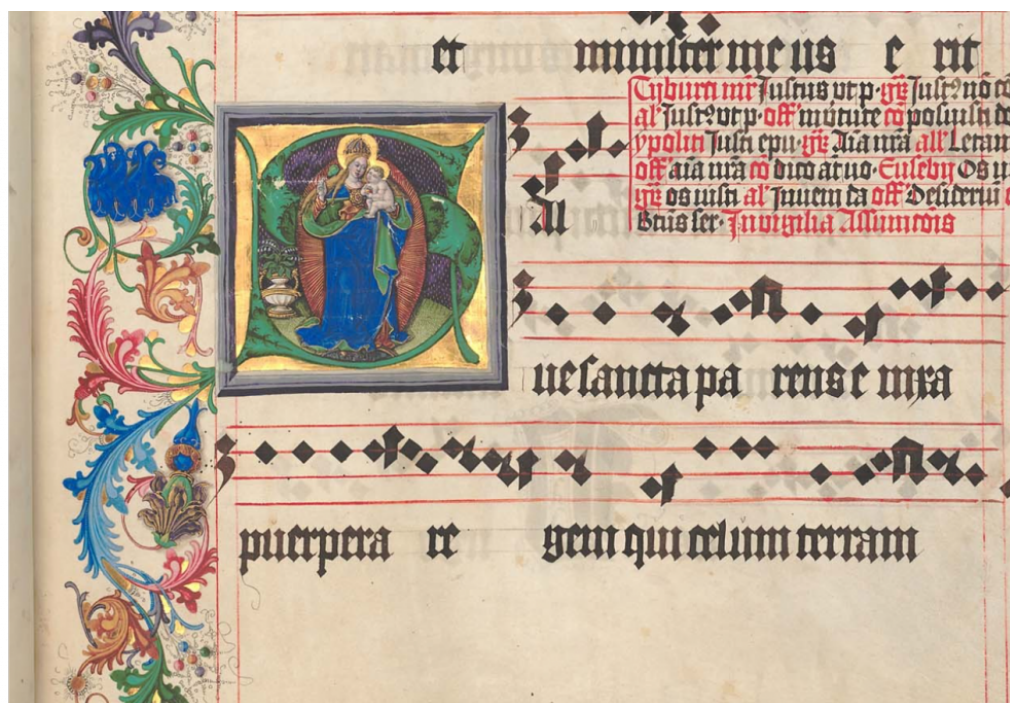 et minister meus e rit
Tyburci mr Justus vt p. gr Just9 nō
al Just9 vt p. off in vtute cō posuisti
ypoliti Justi epu. gr Aīa nra all Letam
off aīa nra cō dico at vo. Eusebij Os
gr os iusti al Inueni da off Desideriū
Btūs ser. In vigilia Assumcōis
Sal
ue sancta pa rens e nixa
puerpera re gem qui celum terram